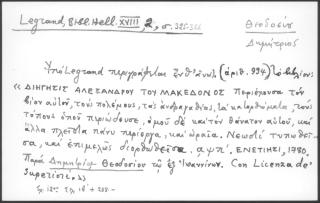 Legrand, Bibl. Hell. XVIII, 2, σ. 325-326
Θεοδοσίου
Δημήτριος
Ὑπὸ Legrand περιγράφεται (ἀριθ. 994) τὸ βιβλίον
« ΔΙΗΓΗΣΙΣ ΑΛΕΞΑΝΔΡΟΥ ΤΟΥ ΜΑΚΕΔΟΝΟΣ Περιέχουσα τὸν
βίον αὐτοῦ, τοὺς πολέμους, τὰς ἀνδραγαθίας, τὰ κατορθώματα, τοὺς
τόπους ὁποὺ περιώδευσε, ὁμοῦ δὲ καὶ τὸν θάνατον αὐτοῦ, καὶ
ἄλλα πλεῖστα πάνυ περίεργα, καὶ ὡραῖα. Νεωστὶ τυπωθεῖ-
σα, καὶ ἐπιμελῶς διορθωθεῖσα. αψπ΄. ΕΝΕΤΙΗΣΙ, 1780.
Παρὰ Δημητρίῳ Θεοδοσίου τῷ ἐξ Ἰωαννίνων. Con Licenza de'
Superiori. »